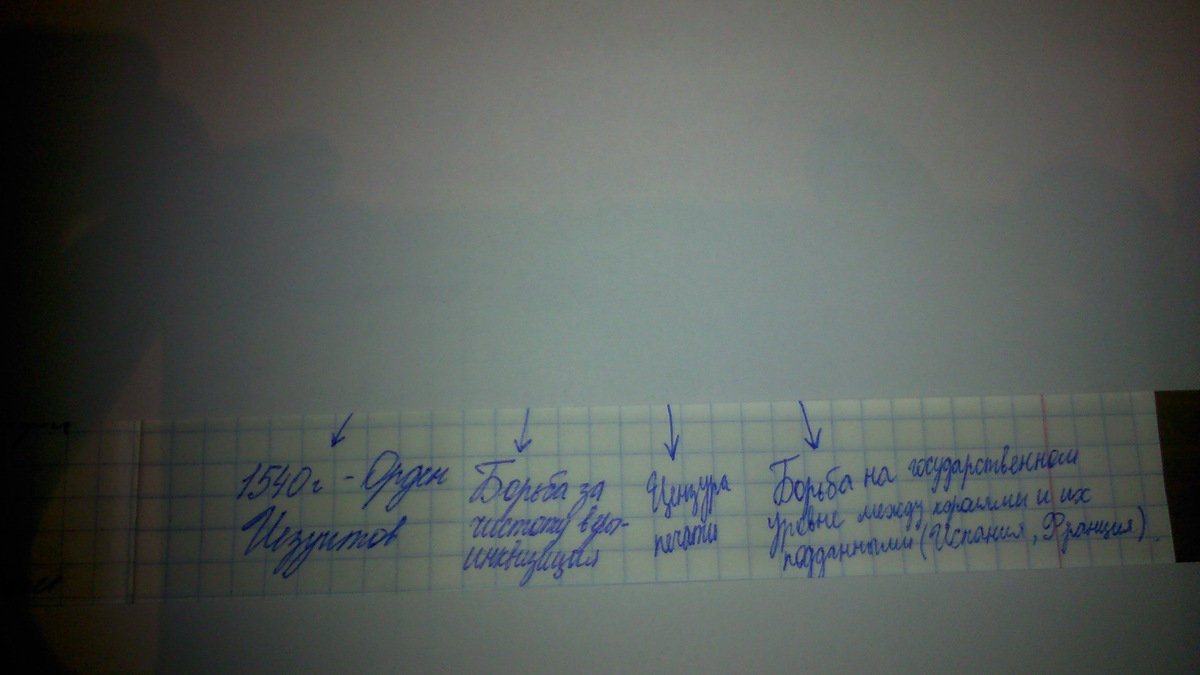 1540г - Орден
Иезуитов
Борьба за
чистоту веры-
инквизиция
Цензура
печати
Борьба на государственном
уровне между королями и их
подданными (Испания, Франция).